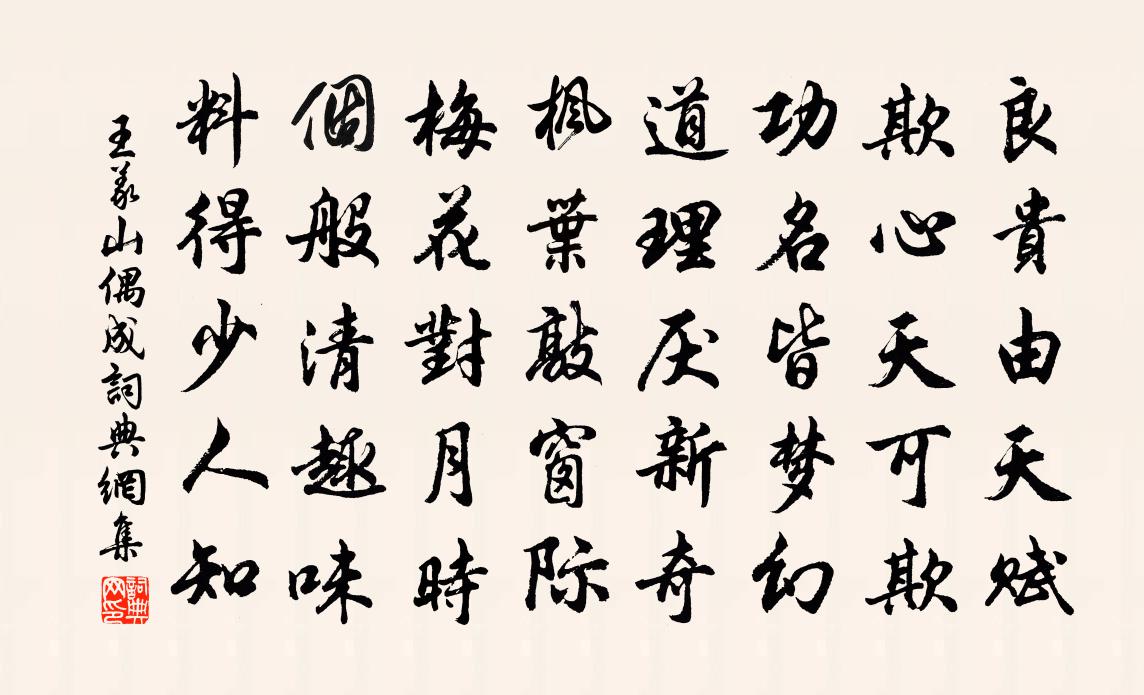 良貴由天赋
欺心天可欺
功名皆梦幻
道理厌新奇
枫葉敲窗际
梅花對月時
個般清趣味
料得少人知
王义山偶成詞典網集
詞典网印